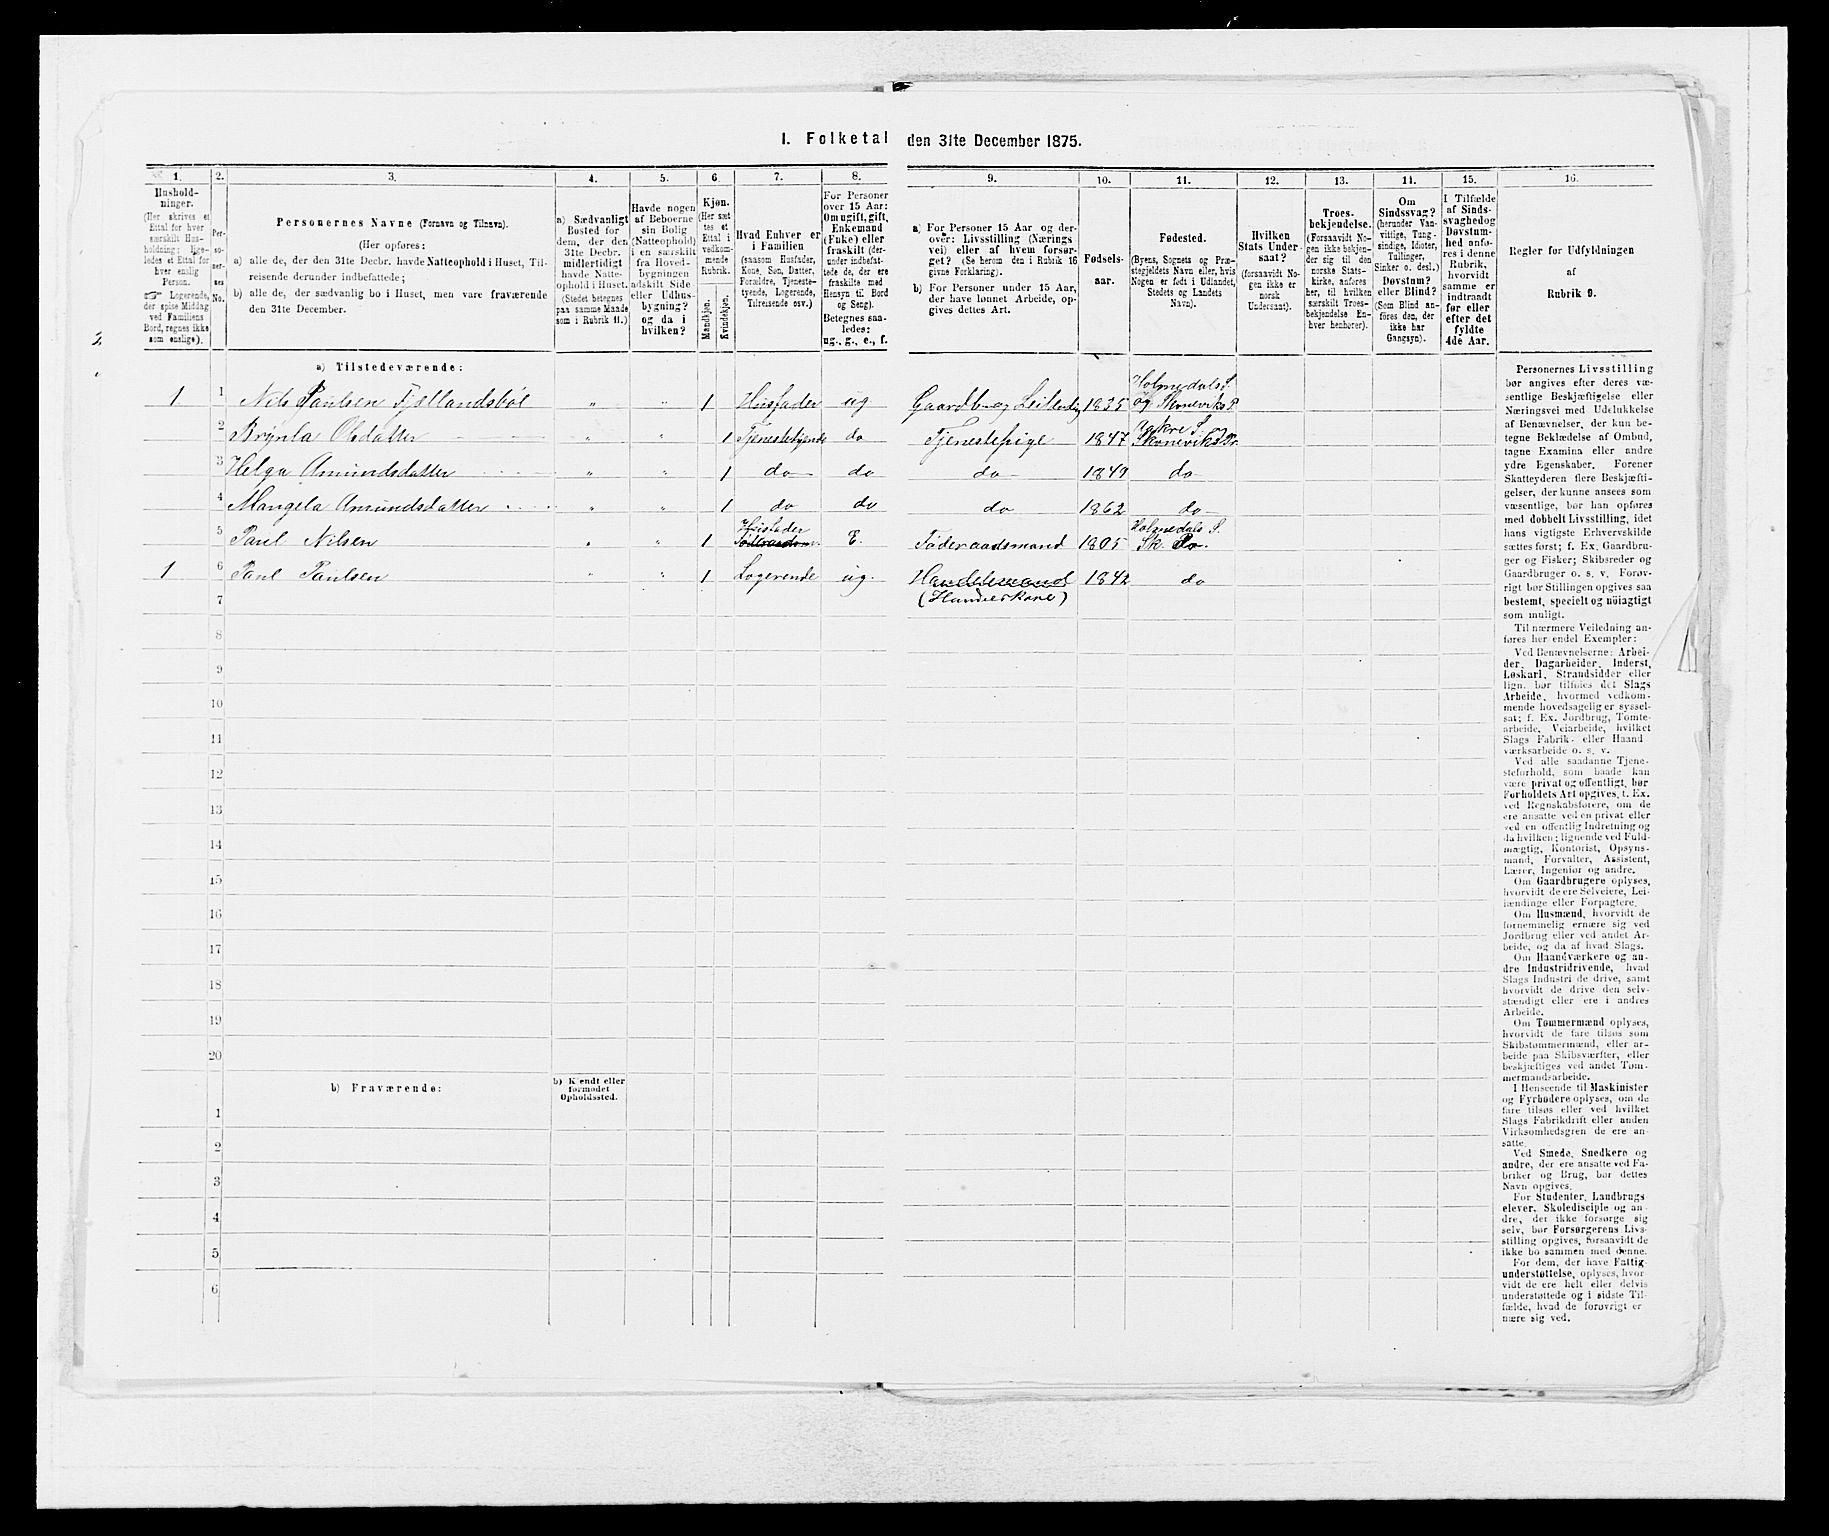 I. Folketal den 31te December 1875.
1. 2. 3. 4. 5. 6. 7. 8. 9. 10. 11. 12. 13. 14. 15. 16.
Hushold-
ninger.
(Her skrives et
Ettal for hver
særskilt Hus-
holdning; lige-
ledes et Ettal for
hver enslig
Person.
☞ Logerende,
der spise Middag
ved Familiens
Bord, regnes ikke
som enslige).
Per-
so-
ner-
nes
No.
Personernes Navne (Fornavn og Tilnavn).
(Her opføres:
a) alle de, der den 31te Decbr. havde Natteophold i Huset, Til-
reisende derunder indbefattede;
b) alle de, der sædvanlig bo i Huset, men vare fraværende
den 31te December.
a) Sædvanligt
Bosted for
dem, der den
31te Decbr.
midlertidigt
havde Natte-
ophold i Huset.
(Stedet betegnes
paa samme Maade
som i Rubrik 11.)
Havde nogen
af Beboerne
sin Bolig
(Natteophold)
i en særskilt
fra Hoved-
bygningen
adskilt Side
eller Udhus-
bygning?
og da i
hvilken?
Kjøn.
(Her sæt
tes et
Ettal i
vedkom-
mende
Rubrik.
Mandkjøn.
Kvindekjøn.
Hvad Enhver er
i Familien
(saasom Husfader,
Kone, Søn, Datter,
Forældre, Tjeneste-
tyende, Logerende,
Tilreisende osv.)
For Personer
over 15 Aar:
Om ugift, gift,
Enkemand
(Enke) eller
fraskilt (der-
under indbefat-
tede de, der ere
fraskilte med
Hensyn til Bord
og Seng).
Betegnes saa-
ledes:
ug., g., e., f.
a) For Personer 15 Aar og der-
over: Livsstilling (Nærings
vei) eller af hvem forsør-
get? (Se herom den i Rubrik 16
givne Forklaring).
b) For Personer under 15 Aar,
der have lønnet Arbeide, op-
gives dettes Art.
Fødsels-
aar.
Fødested.
(Byens, Sognets og Præ-
stegjeldets Navn eller, hvis
Nogen er født i Udlandet,
Stedets og Landets
Navn).
Hvilken
Stats Under-
saat?
(forsaavidt No-
gen ikke er
norsk
Undersaat).
Troes-
bekjendelse.
(Forsaavidt No-
gen ikke bekjen-
der sig til den
norske Stats-
kirke, anføres
her, til hvilken
særskilt Troes-
bekjendelse En-
hver henhører).
Om
Sindssvag?
(herunder Van-
vittige, Tung-
sindige, Idioter,
Tullinger,
Sinker o. desl.)
Døvstum?
eller Blind?
(Som Blind an-
føres den, der
ikke har
Gangsyn).
I Tilfælde
af Sinds-
svaghed og
Døvstum-
hed anfø-
res i denne
Rubrik,
hvorvidt
samme er
indtraadt
før eller
efter det
fyldte
4de Aar.
Regler for Udfyldningen
af
Rubrik 9.
a) Tilstedeværende:
1 1 Nils Paulsen Fjellandsbøl " " 1 Husfader ug. Gaardbr. og Leilending 1835 Holmedals S. og Skoneviks P.
2 Brynla Olsdatter " " 1 Tjenestetyende do Tjenestepige 1847 Aakre S. Skoneviks Pr.
3 Helga Amundsdatter " " 1 do do do 1849 do
4 Mangela Amundsdatter " " 1 do do do 1862 do
5 Paul Nilsen " " 1 Husfader E. Føderaadsmand 1805 Holmedals S. Sk. Pr.
1 6 Paul Paulsen " " 1 Logerende ug. Handelsmand 1842 do
7 (Handelskarl)
8
9
10
11
12
13
14
15
16
17
18
19
20
b) Fraværende:
b) Kjendt eller
formodet
Opholdssted.
1
2
3
4
5
6
Personernes Livsstilling
bør angives efter deres væ-
sentlige Beskjæftigelse eller
Næringsvei med Udelukkelse
af Benævnelser, der kun be-
tegne Beklædelse af Ombud,
tagne Examina eller andre
ydre Egenskaber. Forener
Skatteyderen flere Beskjæfti-
gelser, der kunne ansees som
væsentlige, bør han opføres
med dobbelt Livsstilling, idet
hans vigtigste Erhvervskilde
sættes først; f. Ex. Gaardbru-
ger og Fisker; Skibsreder og
Gaardbruger o. s. v. Forøv-
rigt bør Stillingen opgives saa
bestemt, specielt og nöiagtigt
som muligt.
Til nærmere Veiledning an-
føres her endel Exempler:
Ved Benævnelserne: Arbei-
der, Dagarbeider, Inderst,
Løskarl, Strandsidder eller
lign. bør tilføies det Slags
Arbeide, hvormed vedkom-
mende hovedsagelig er syssel-
sat; f. Ex. Jordbrug, Tomte-
arbeide, Veiarbeide, hvilket
Slags Fabrik- eller Haand
værksarbeide o. s. v.
Ved alle saadanne Tjene-
steforhold, som baade kan
være privat og offentligt, bør
Forholdets Art opgives, t. Ex.
ved Regnskabsførere, om de
ere ansatte ved en privat eller
ved en offentlig Indretning og
da hvilken; lignende ved Fuld-
mægtig, Kontorist, Opsyns-
mand, Forvalter, Assistent,
Lærer, Ingeniør og andre.
Om Gaardbrugere oplyses,
hvorvidt de ere Selveiere, Lei-
lændinge eller Forpagtere.
Om Husmænd, hvorvidt de
fornemmelig ernære sig ved
Jordbrug eller ved andet Ar-
beide, og da af hvad Slags.
Om Haandværkere og an-
dre Industridrivende, hvad
Slags Industri de drive, samt
hvorvidt de drive den selv-
stændigt eller ere i andres
Arbeide.
Om Tømmermænd oplyses,
hvorvidt de fare tilsøs som
Skibstømmermænd, eller ar-
beide paa Skibsværfter, eller
beskjæftiges ved andet Tøm-
mermandsarbeide.
I Henseende til Maskinister
og Fyrbødere oplyses, om de
fare tilsøs eller ved hvilket
Slags Fabrikdrift eller anden
Virksomhedsgren de ere an-
satte.
Ved Smede, Snedkere og
andre, der ere ansatte ved Fa-
briker og Brug, bør dettes
Navn opgives.
For Studenter, Landbrugs
elever, Skoledisciple og an-
dre, der ikke forsørge sig
selv, bør Forsørgerens Livs-
stilling opgives, forsaavidt de
ikke bo sammen med denne.
For dem, der have Fattig-
understøttelse, oplyses, hvor-
vidt de ere helt eller delvis
understøttede og i sidste Til-
fælde, hvad de forøvrigt er-
nære sig ved.